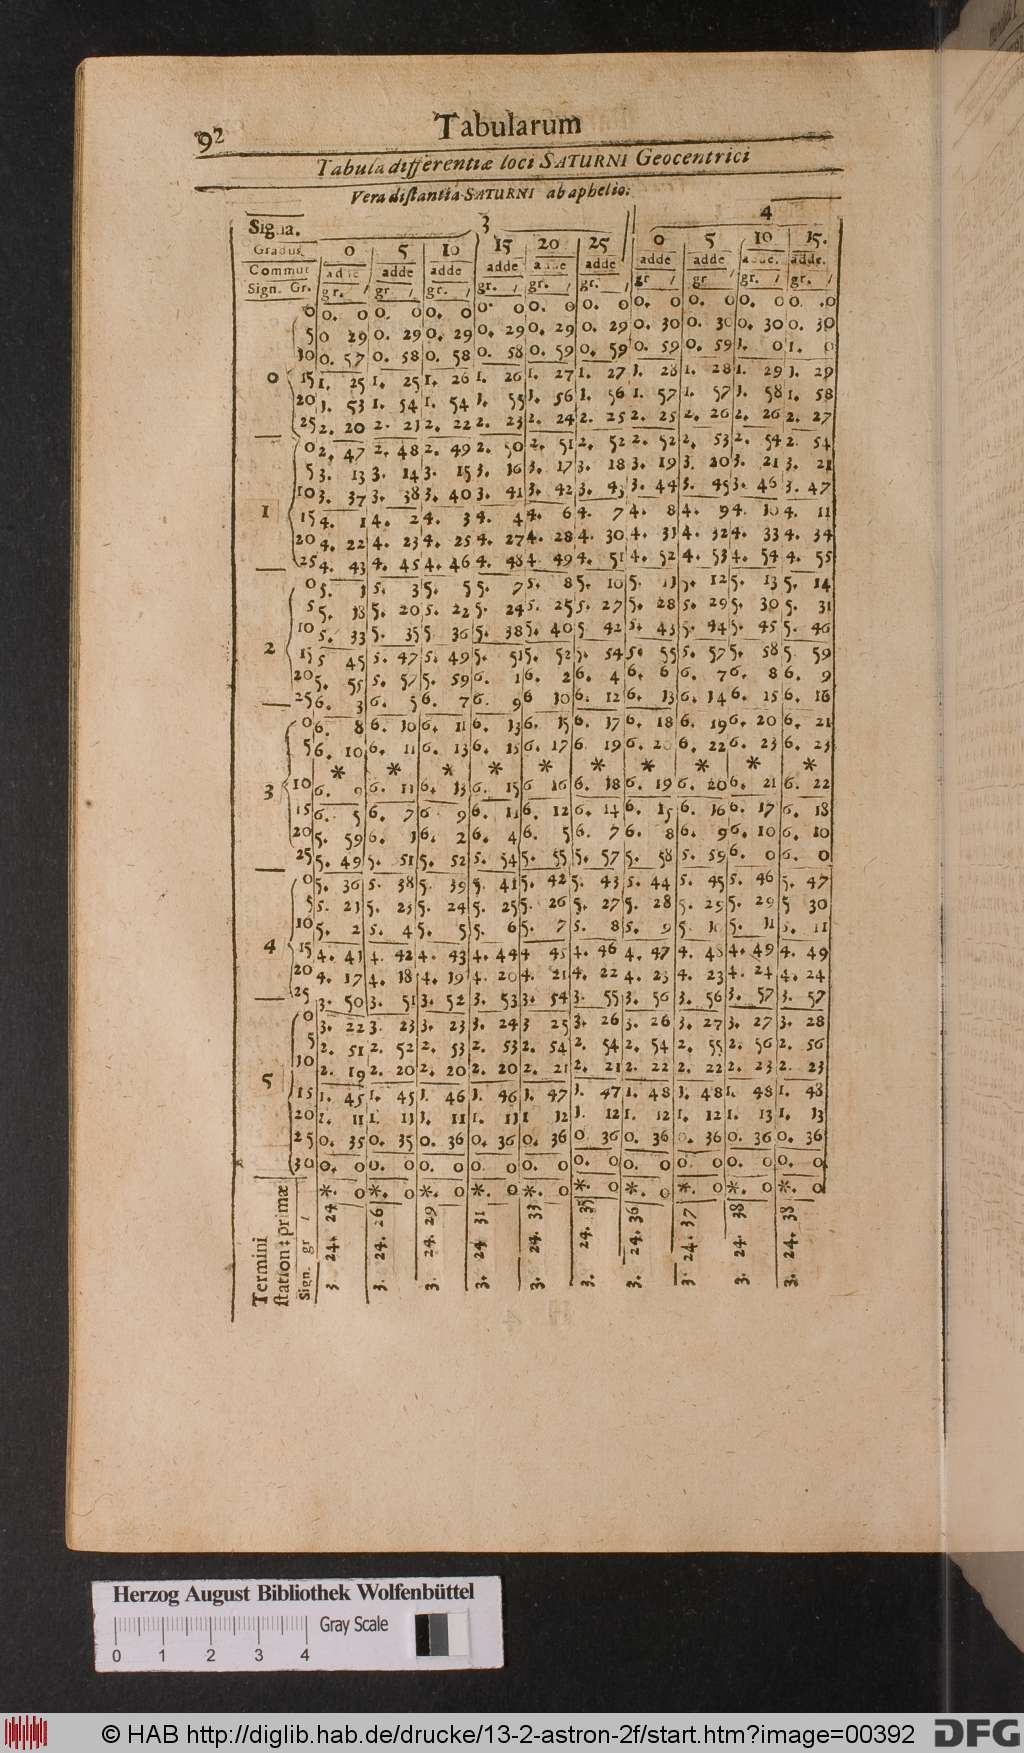 92
Tabularum
Tabula differentiæ loci SATURNI Geocentrici
Vera distantia SATURNI ab aphelio.
Signa. 3 4
Gradus 0 5 10 15 20 25 0 5 10 15.
Commut adde adde adde adde adde adde adde adde adde. adde.
Sign. Gr. gr. / gr / gr. / gr. / gr. / gr. / gr / gr / gr. / gr. /
0 0. 0 0. 0 0. 0 0. 0 0. 0 0. 0 0. 0 0. 0 0. 0 0. 0
5 0 29 0. 29 0. 29 0. 29 0. 29 0. 29 0. 30 0. 30 0. 30 0. 30
10 0. 57 0. 58 0. 58 0. 58 0. 59 0. 59 0. 59 0. 59 1. 0 1. 0
0 15 1. 25 1. 25 1. 26 1. 26 1. 27 1. 27 1. 28 1. 28 1. 29 1. 29
20 1. 53 1. 54 1. 54 1. 55 1. 56 1. 56 1. 57 1. 57 1. 58 1. 58
25 2. 20 2. 21 2. 22 2. 23 2. 24 2. 25 2. 25 2. 26 2. 26 2. 27
0 2. 47 2. 48 2. 49 2. 50 2. 51 2. 52 2. 52 2. 53 2. 54 2. 54
5 3. 13 3. 14 3. 15 3. 16 3. 17 3. 18 3. 19 3. 20 3. 21 3. 21
10 3. 37 3. 38 3. 40 3. 41 3. 42 3. 43 3. 44 3. 45 3. 46 3. 47
1 15 4. 1 4. 2 4. 3 4. 4 4. 6 4. 7 4. 8 4. 9 4. 10 4. 11
20 4. 22 4. 23 4. 25 4. 27 4. 28 4. 30 4. 31 4. 32 4. 33 4. 34
25 4. 43 4. 45 4. 46 4. 48 4. 49 4. 51 4. 52 4. 53 4. 54 4. 55
0 5. 1 5. 3 5. 5 5. 7 5. 8 5. 10 5. 11 5. 12 5. 13 5. 14
5 5. 18 5. 20 5. 22 5. 24 5. 25 5. 27 5. 28 5. 29 5. 30 5. 31
10 5. 33 5. 35 5. 36 5. 38 5. 40 5 42 5. 43 5. 44 5. 45 5. 46
2 15 5 45 5. 47 5. 49 5. 51 5. 52 5. 54 5. 55 5. 57 5. 58 5. 59
20 5. 55 5. 57 5. 59 6. 1 6. 2 6. 4 6. 6 6. 7 6. 8 6. 9
25 6. 3 6. 5 6. 7 6. 9 6 10 6. 12 6. 13 6. 14 6. 15 6. 16
0 6. 8 6. 10 6. 11 6. 13 6. 15 6. 17 6. 18 6. 19 6. 20 6. 21
5 6. 10 6. 11 6. 13 6. 15 6. 17 6. 19 6. 20 6. 22 6. 23 6. 23
* * * * * * * * * *
3 10 6. 9 6. 11 6. 13 6. 15 6 16 6. 18 6. 19 6. 20 6. 21 6. 22
15 6. 5 6. 7 6 9 6. 11 6. 12 6. 14 6. 15 6. 16 6. 17 6. 18
20 5. 59 6. 1 6. 2 6. 4 6. 5 6. 7 6. 8 6. 9 6. 10 6. 10
25 5. 49 5. 51 5. 52 5. 54 5. 55 5. 57 5. 58 5. 59 6. 0 6. 0
0 5. 36 5. 38 5. 39 5. 41 5. 42 5. 43 5. 44 5. 45 5. 46 5. 47
5 5. 21 5. 23 5. 24 5. 25 5. 26 5. 27 5. 28 5. 29 5. 29 5 30
10 5. 2 5. 4 5. 5 5. 6 5. 7 5. 8 5. 9 5. 10 5. 11 5. 11
4 15 4. 41 4. 42 4. 43 4. 44 4 45 4. 46 4. 47 4. 48 4. 49 4. 49
20 4. 17 4. 18 4. 19 4. 20 4. 21 4. 22 4. 23 4. 23 4. 24 4. 24
25 3. 50 3. 51 3. 52 3. 53 3. 54 3. 55 3. 56 3. 56 3. 57 3. 57
0 3. 22 3. 23 3. 23 3. 24 3 25 3. 26 3. 26 3. 27 3. 27 3. 28
5 2. 51 2. 52 2. 53 2. 53 2. 54 2. 54 2. 54 2. 55 2. 56 2. 56
10 2. 19 2. 20 2. 20 2. 20 2. 21 2. 21 2. 22 2. 22 2. 23 2. 23
5 15 1. 45 1. 45 1. 46 1. 46 1. 47 1. 47 1. 48 1. 48 1. 48 1. 48
20 1. 11 1. 11 1. 11 1. 11 1 12 1. 12 1. 12 1. 12 1. 13 1. 13
25 0. 35 0. 35 0. 36 0. 36 0. 36 0. 36 0. 36 0. 36 0. 36 0. 36
30 0. 0 0. 0 0. 0 0. 0 0. 0 0. 0 0. 0 0. 0 0. 0 0. 0
*. 0 *. 0 *. 0 *. 0 *. 0 *. 0 *. 0 *. 0 *. 0 *. 0
Termini
station: primæ
Sign. gr /
3 24. 24
3. 24. 26
3. 24. 29
3. 24 31
3. 24. 33
3. 24. 35
3. 24. 36
3. 24. 37
3. 24. 38
3. 24. 38
Herzog August Bibliothek Wolfenbüttel
Gray Scale
0 1 2 3 4
© HAB http://diglib.hab.de/drucke/13-2-astron-2f/start.htm?image=00392
DFG